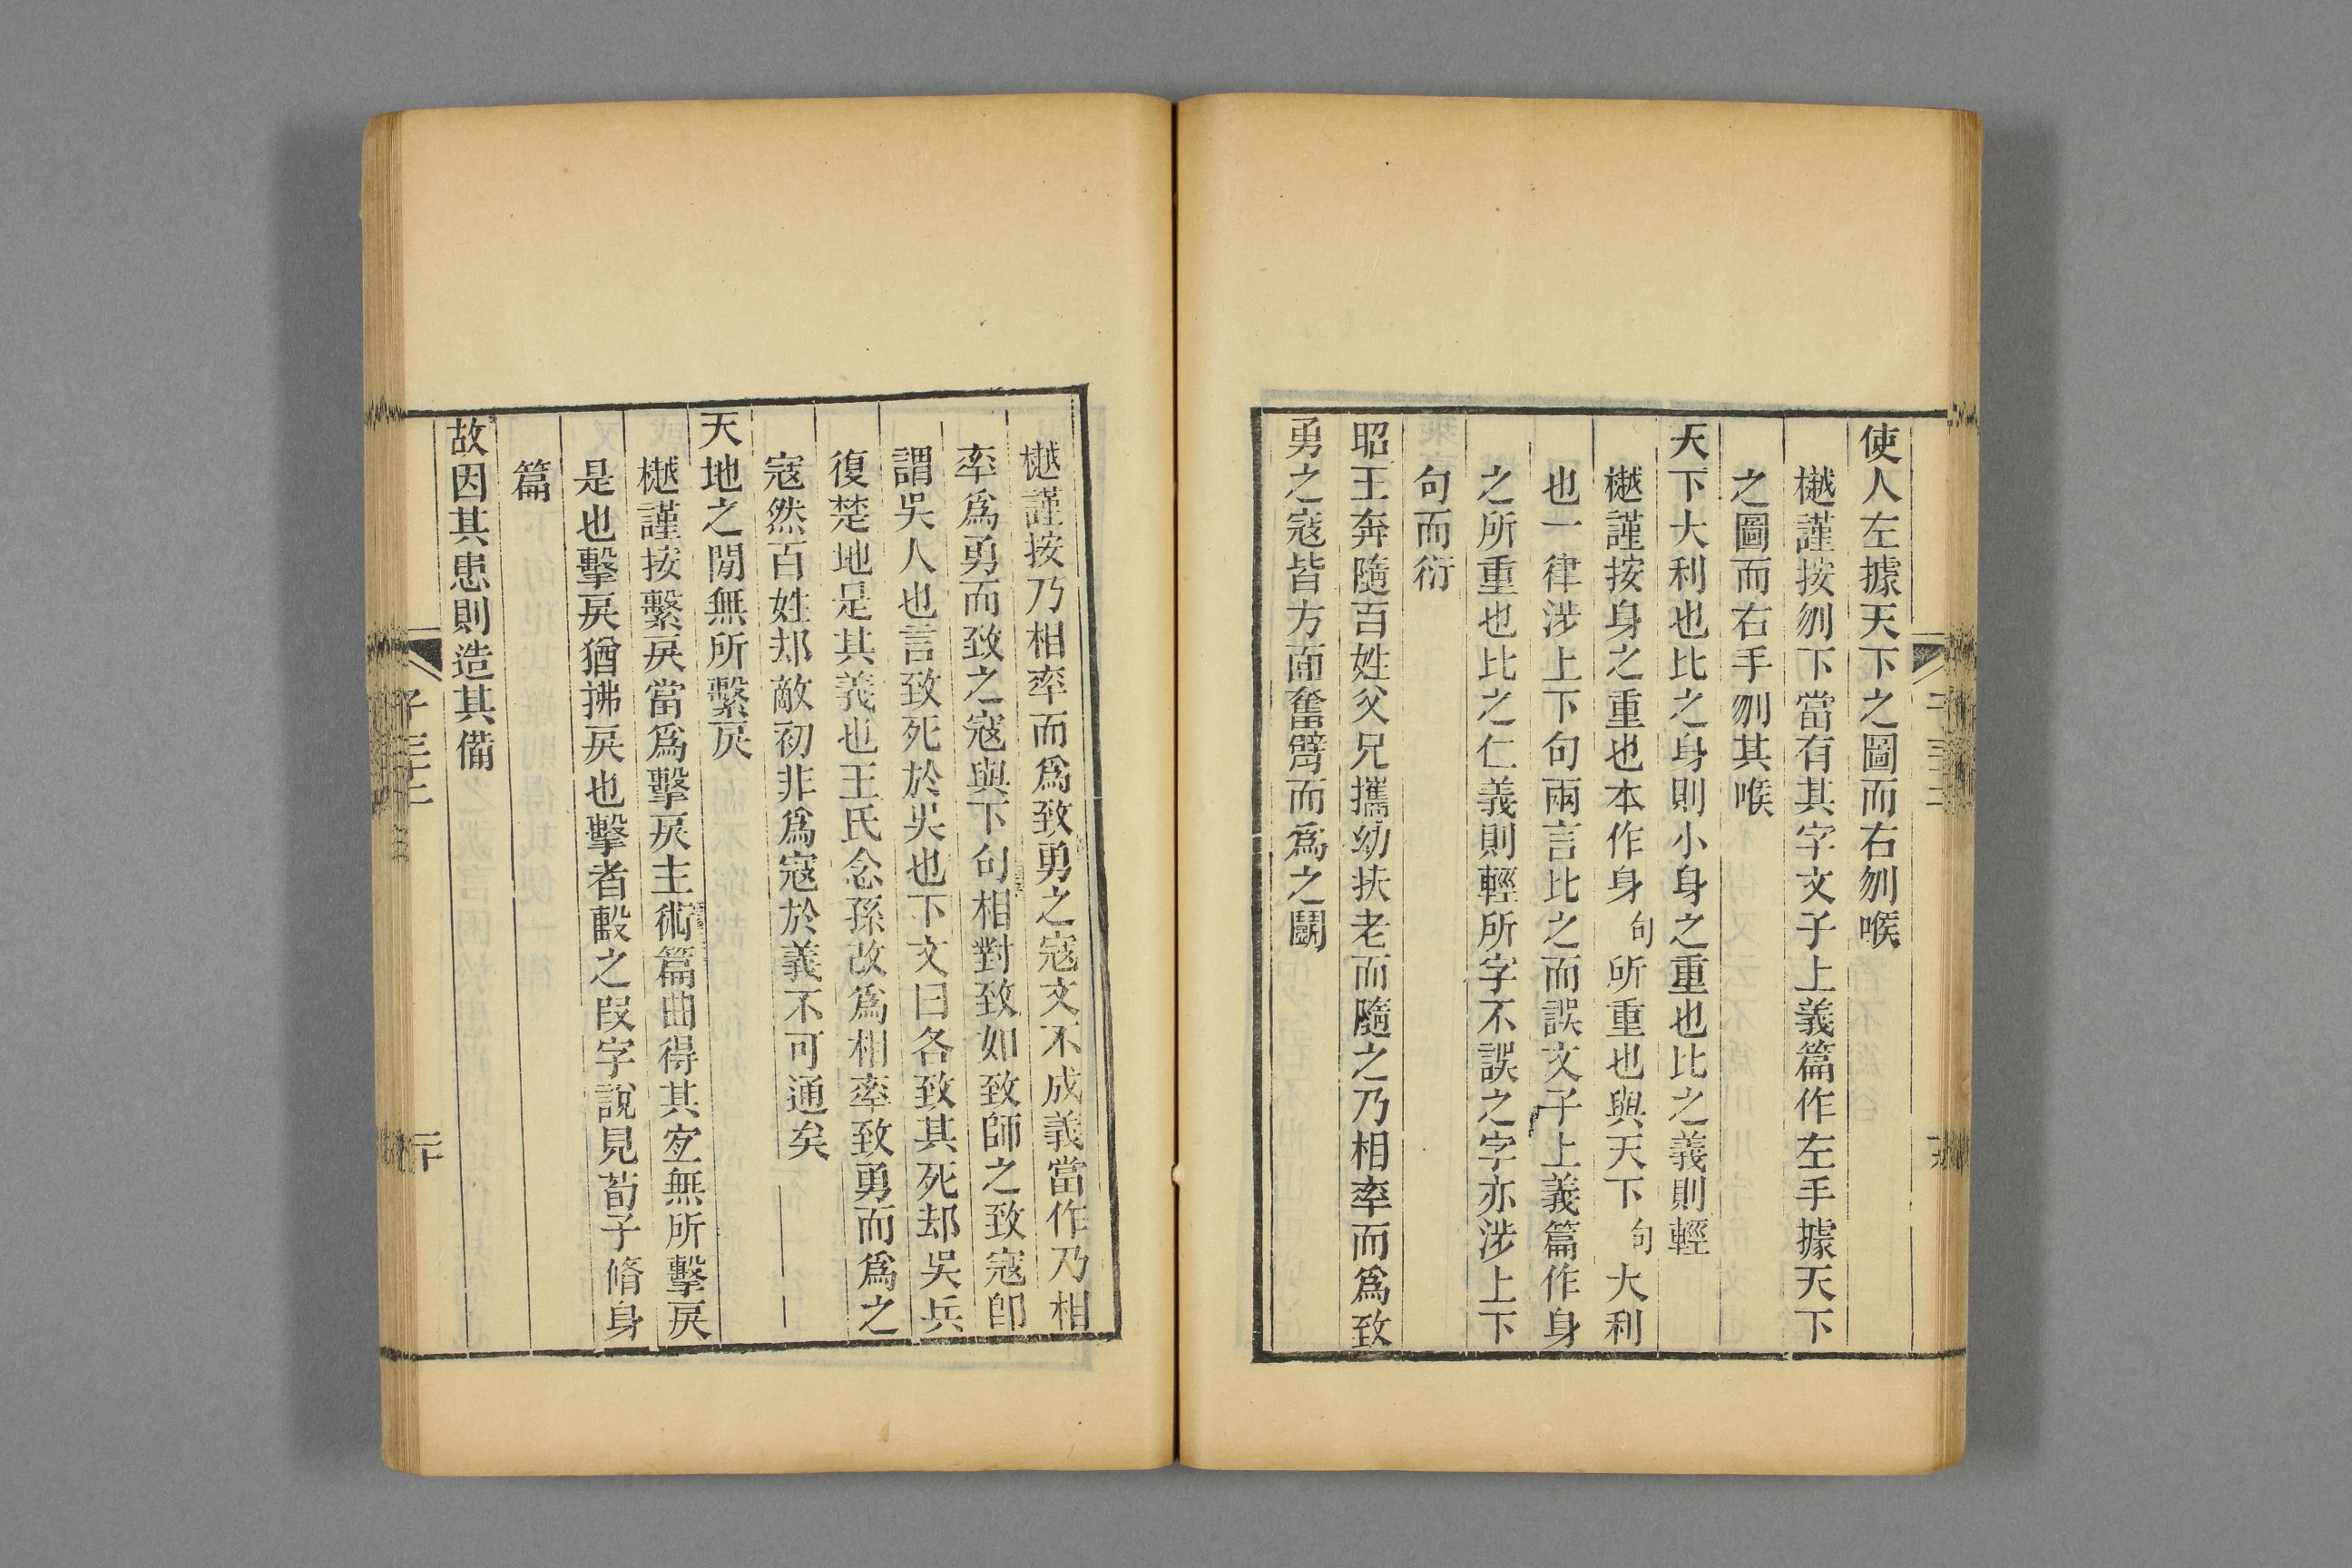 使人左據天下之圖而右刎喉
樾謹按刎下當有其字文子上義篇作左手據天下
之圖而右手刎其喉
天下大利也比之身則小身之重也比之義則輕
樾謹按身之重也本作身句所重也與天下句大利
也一律涉上下句兩言比之而誤文子上義篇作身
之所重也比之仁義則輕所字不誤之字亦涉上下
句而衍
昭王奔隨百姓父兄攜幼扶老而隨之乃相率而爲致
勇之寇皆方面奮臂而爲之鬭
樾謹按乃相率而爲致勇之寇文不成義當作乃相
率爲勇而致之寇與下句相對致如致師之致寇卽
謂吳人也言致死於吳也下文曰各致其死却吳兵
復楚地是其義也王氏念孫改爲相率致勇而爲之
寇然百姓却敵初非爲寇於義不可通矣
天地之閒無所繫戾
樾謹按繫戾當爲擊戾主術篇曲得其宐無所擊戾
是也擊戾猶拂戾也擊者毄之叚字說見荀子脩身
篇
故因其患則造其備